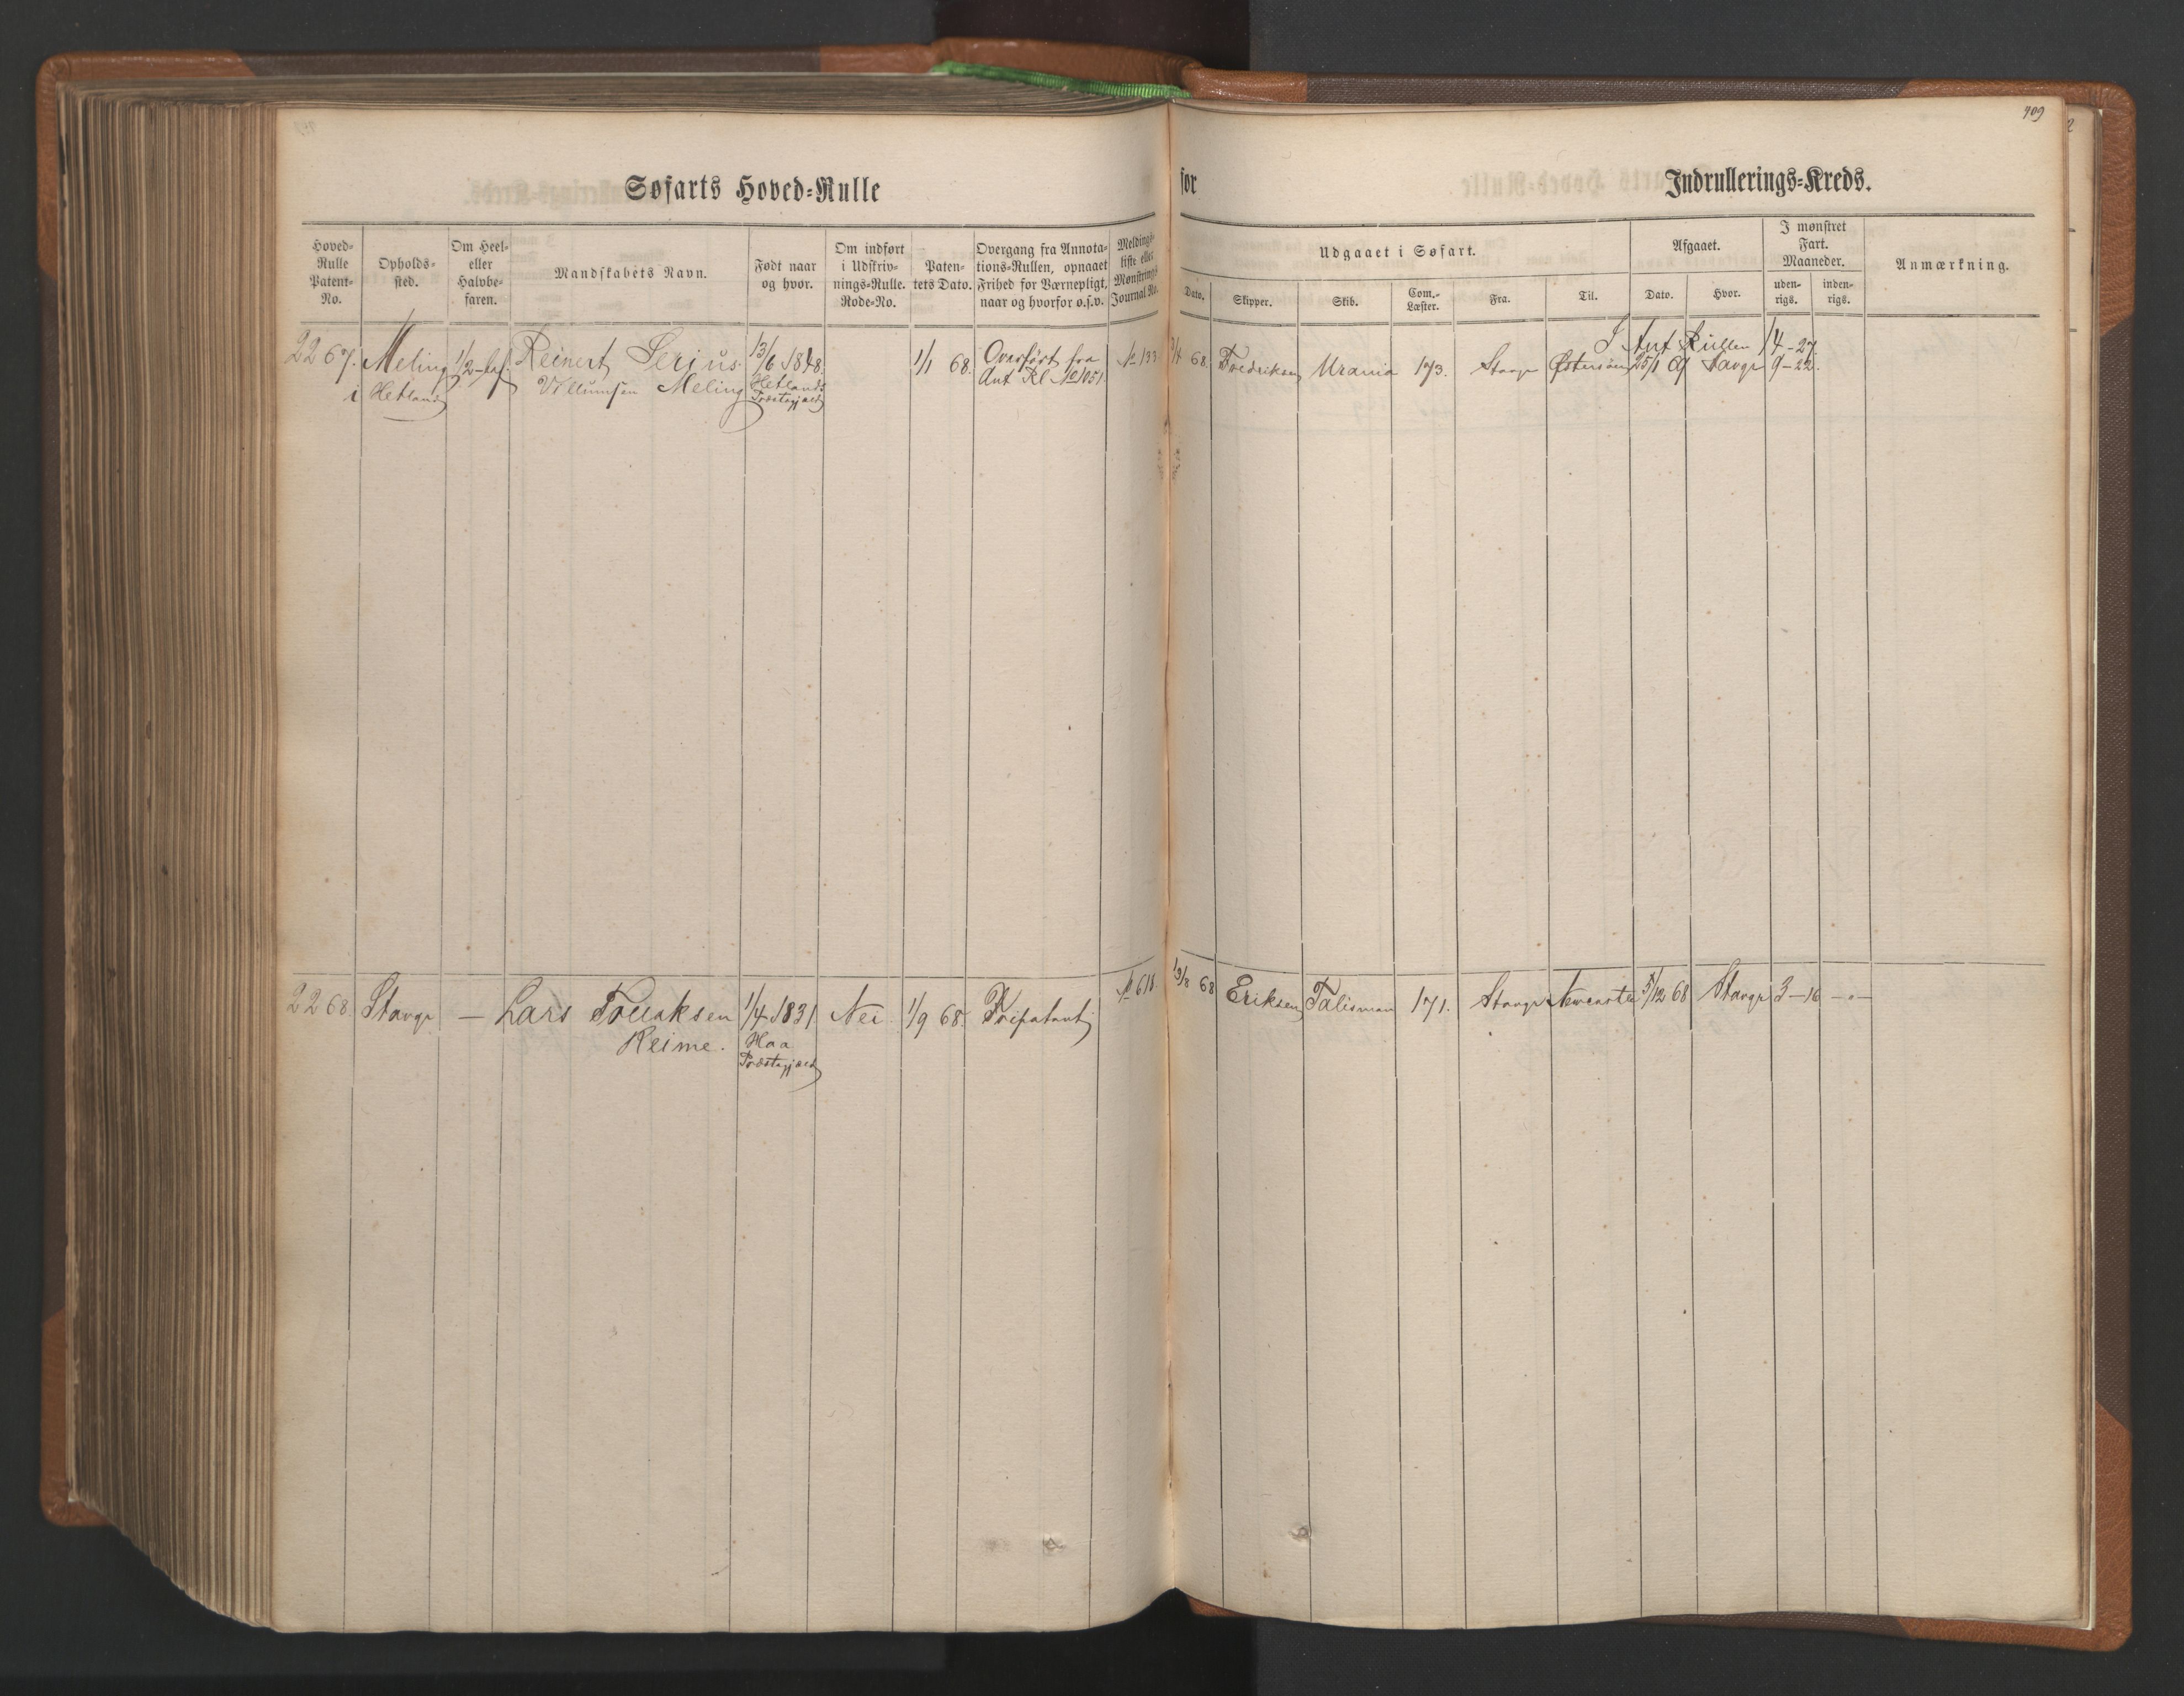 409
Søfarts Hoved=Rulle for Indrullerings=Kreds.
Hoved=Rulle Patent=No.
Opholds=sted.
Om Heel= eller Halvbe=faren.
Mandskabets Navn.
Født naar og hvor.
Om indført i Udskriv=nings=Rulle. Rode=No.
Paten=tets Dato.
Overgang fra Annota=tions=Rullen, opnaaet Frihed for Værnepligt, naar og hvorfor o.s.v.
Meldings=liste eller Mønstrings Journal No.
Udgaaet i Søfart.
Dato.
Skipper.
Skib.
Com.=Læster.
Fra.
Til.
Afgaaet.
Dato.
Hvor.
I mønstret Fart. Maaneder.
uden=rigs.
inden=rigs.
Anmærkning.
I Ant Rullen 14-27
2267. Meling 1/2 Reinert Serius 13/6 1848. 1/1 68. Overført fra No 133 68. Fredriksen Urania 173. Stavgr Østersøen 25/1 69 Stavgr 9-22.
i Hetland Villumsen Meling Hetlands Ant Rl No 1051.
Præstegjæld
2268. Stavgr — Lars Tollaksen 1/4 1831. Nei. 1/9 68. Fripatent No 618 19/8 68 Eriksen Talisman 171. Stavgr Newcastle 5/12 68 Stavgr 3-16 -"-
Reime. Haa
Præstegjæld